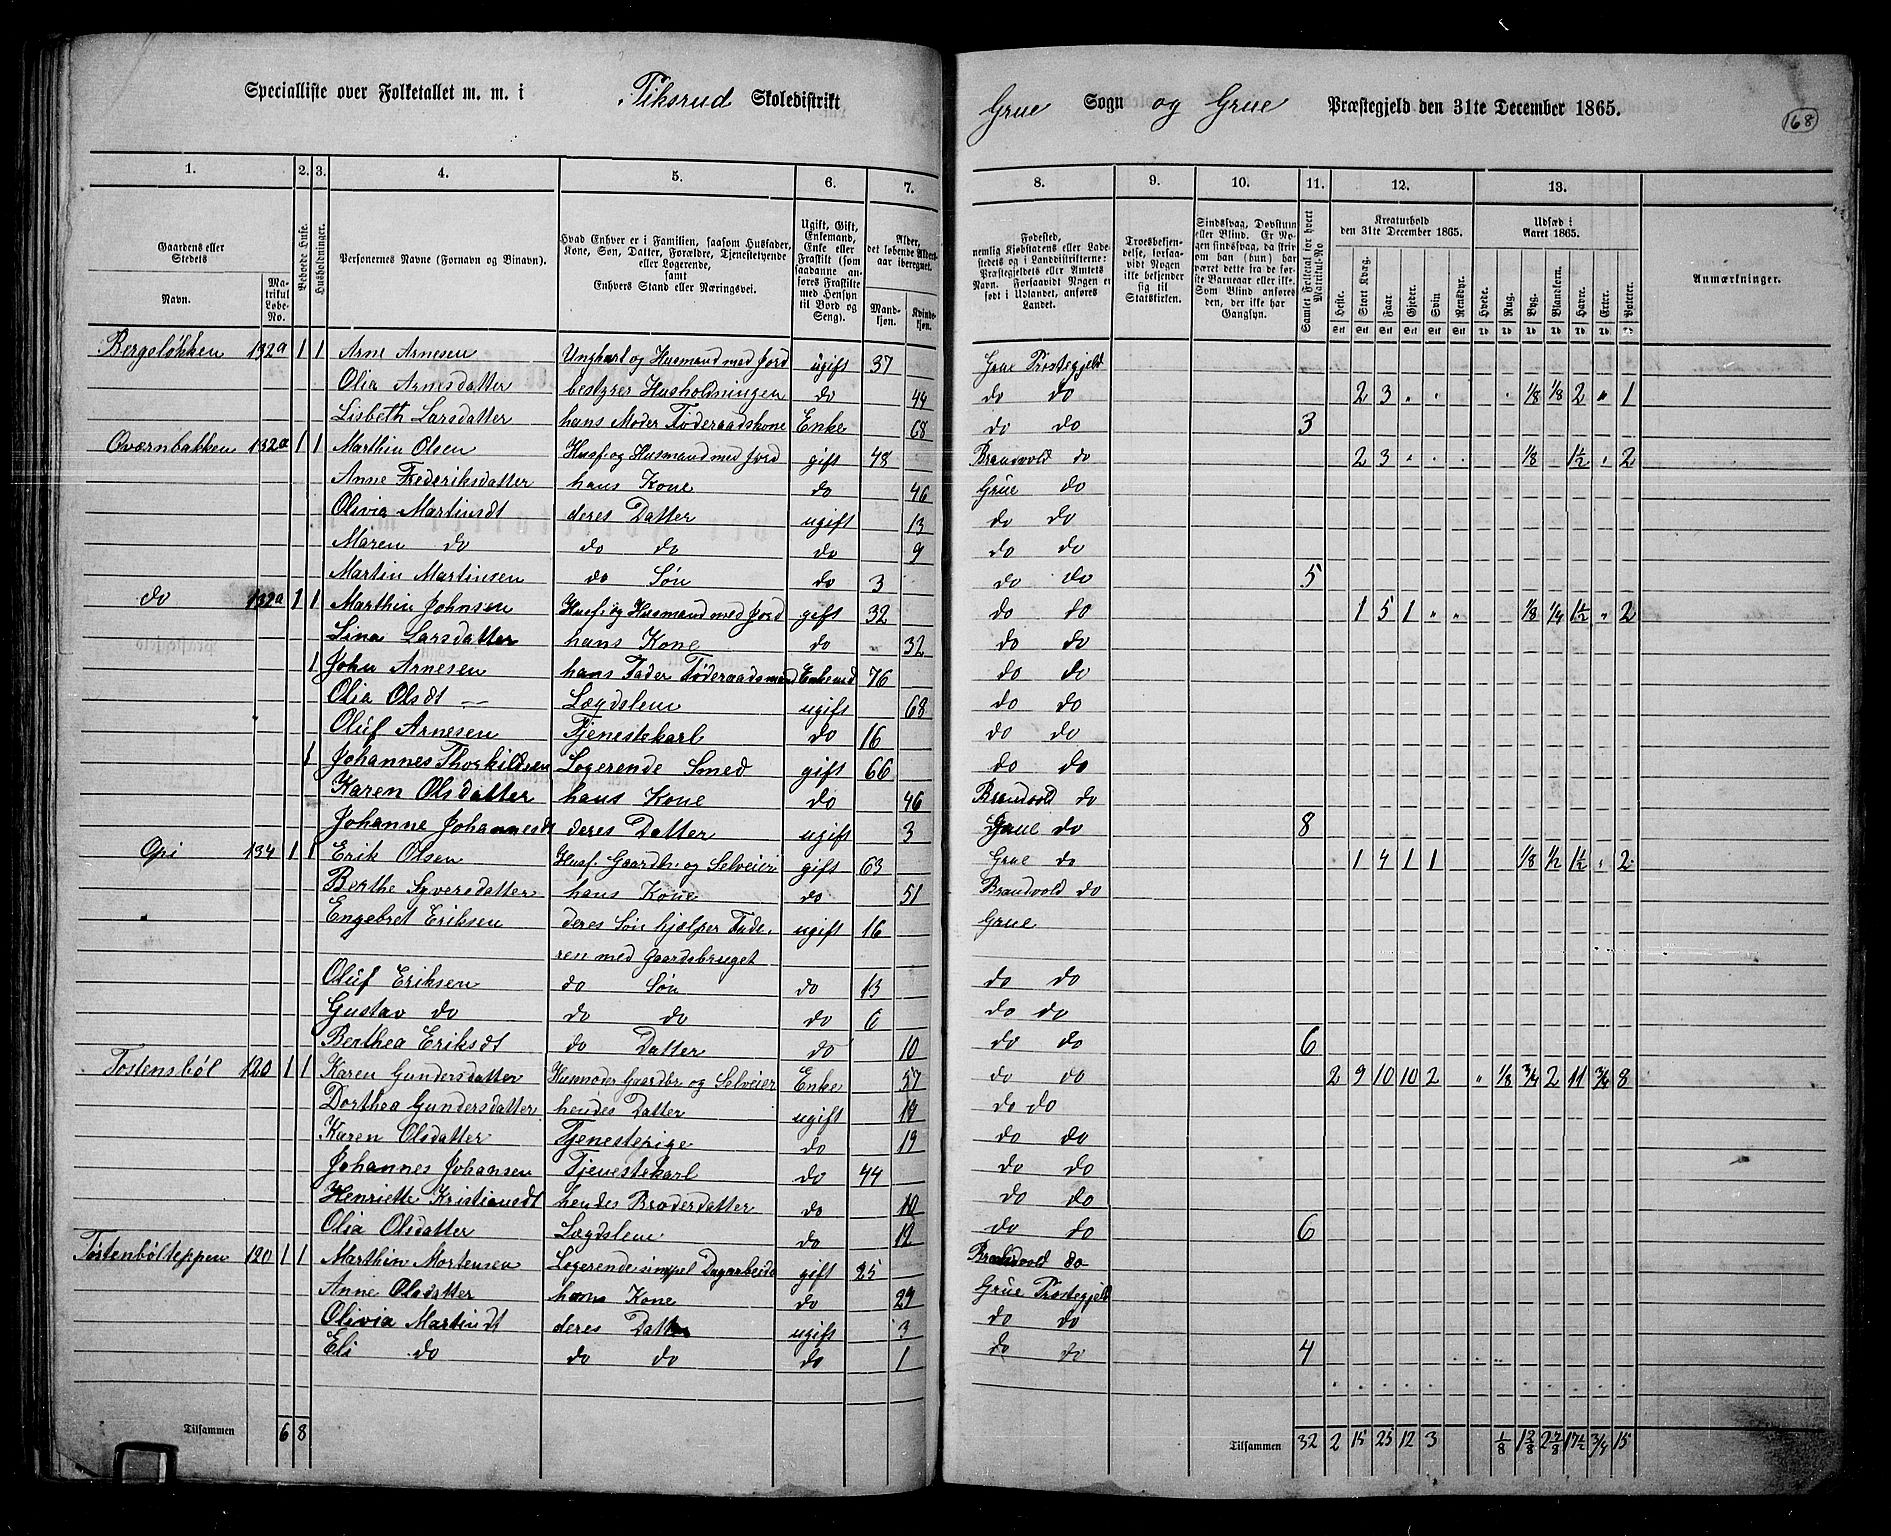 Specialliste over Folketallet m. m. i Tiksrud Skoledistrikt Grue Sogn og Grue Præstegjeld den 31te December 1865.
168
1. 2. 3. 4. 5. 6. 7. 8. 9. 10. 11. 12. 13.
Gaardens eller Stedets
Navn.
Matrikul Løbe-No.
Beboede Huse.
Husholdninger.
Personernes Navne (Fornavn og Binavn).
Hvad Enhver er i Familien, saasom Husfader, Kone, Søn, Datter, Forældre, Tjenestetyende eller Logerende, samt Enhvers Stand eller Næringsvei.
Ugift, Gift, Enkemand, Enke eller Fraskilt (som saadanne anføres Fraskilte med Hensyn til Bord og Seng).
Alder, det løbende Alders-aar iberegnet.
Mandkjøn.
Kvindekjøn.
Fødested, nemlig Kjøbstadens eller Ladestedets og i Landdistrikterne: Præstegjeldets eller Amtets Navn. Forsaavidt Nogen er født i Udlandet, anføres Landet.
Troesbekjendelse, forsaavidt Nogen ikke bekjender sig til Statskirken.
Sindssvag, Døvstum eller Blind. Er Nogen sindssvag, da skrives om han (hun) har været dette fra de første Barneaar eller ikke. Som Blind anføres den, der ikke har Gangsyn.
Samlet Folketal for hvert Matrikul-No
Kreaturhold den 31te December 1865.
Heste. Stort Kvæg. Faar. Gjeder. Svin Rensdyr.
Udsæd i Aaret 1865.
Hvede. Rug. Byg. Blandkorn. Havre. Erter. Poteter.
Anmærkninger.
Bergeløkken 132a 1 1 Arne Arnesen Ungkarl og Husmand med Jord ugift 37 Grue Præstegjeld
Olia Arnesdatter bestyrer Husholdningen do 44 do do 2 3 1/8 1/8 2 " 1
Lisbeth Larsdatter hans Moder Føderaadskone Enke 68 do do 3
Qværnbakken 132a 1 1 Marthin Olsen Husf. og Husmand med Jord gift 48 Brandvold do 2 3 1/8 1½ 2
Anne Frederiksdatter hans Kone do 46 Grue do
Olivia Martinsdt deres Datter ugift 13 do do
Maren do do do do 9 do do
Martin Martinsen do Søn do 3 do do 5
do 132a 1 1 Marthin Johnsen Husf. og Husmand med Jord gift 32 do do 1 5 1 " " 1/8 1/4 1½ " 2
Lina Larsdatter hans Kone do 32 do do
1 John Arnesen hans Fader Føderaadsmand Enkemd 76 do do
Olia Olsdt Lægdslem ugift 68 do do
Oluf Arnesen Tjenestekarl do 16 do do
1 Johannes Thorkildsen Logerende Smed gift 66 do do
Karen Olsdatter hans Kone do 46 Brandvold do
Johanne Johannesdt deres Datter ugift 3 Grue do 8
Opi 134 1 1 Erik Olsen Husf. Gaardbr. og Selveier gift 63 Grue do 1 4 1 1 1/8 1/2 1½ 2
Berthe Syversdatter hans Kone do 51 Brandvold do
Engebret Eriksen deres Søn hjælper Fade- ugift 16 Grue
ren med Gaardsbruget
Oluf Eriksen do Søn do 13 do do
Gustav do do do do 6 do do
Berthea Eriksdt do Datter do 10 do do 6
Tostensbøl 120 1 1 Karen Gundersdatter Husmoder Gaardbr. og Selveier Enke 57 do do 2 9 10 10 2 " 1/8 3/4 2 11 3/4 8
Dorthea Gundersdatter hendes Datter ugift 19 do do
Karen Olsdatter Tjenestepige do 19 do do
Johannes Johansen Tjenestekarl do 44 do do
Henriette Kristiansdt hendes Broderdatter do 10 do do
Olia Olsdatter Lægdslem do 12 do do 6
Tostenbølteppen 120 1 1 Marthin Mortensen Logerende simpel Dagarbeide gift 25 Brandvold do
Anne Olsdatter hans Kone do 29 Grue Præstegjeld
Olivia Martinsdt deres Datter ugift 3 do do
Eli do do do do 1 do do 4
Tilsammen 6 8 Tilsammen 32 2 15 25 12 3 1/8 1 2/8 2 7/8 17½ 3/4 15